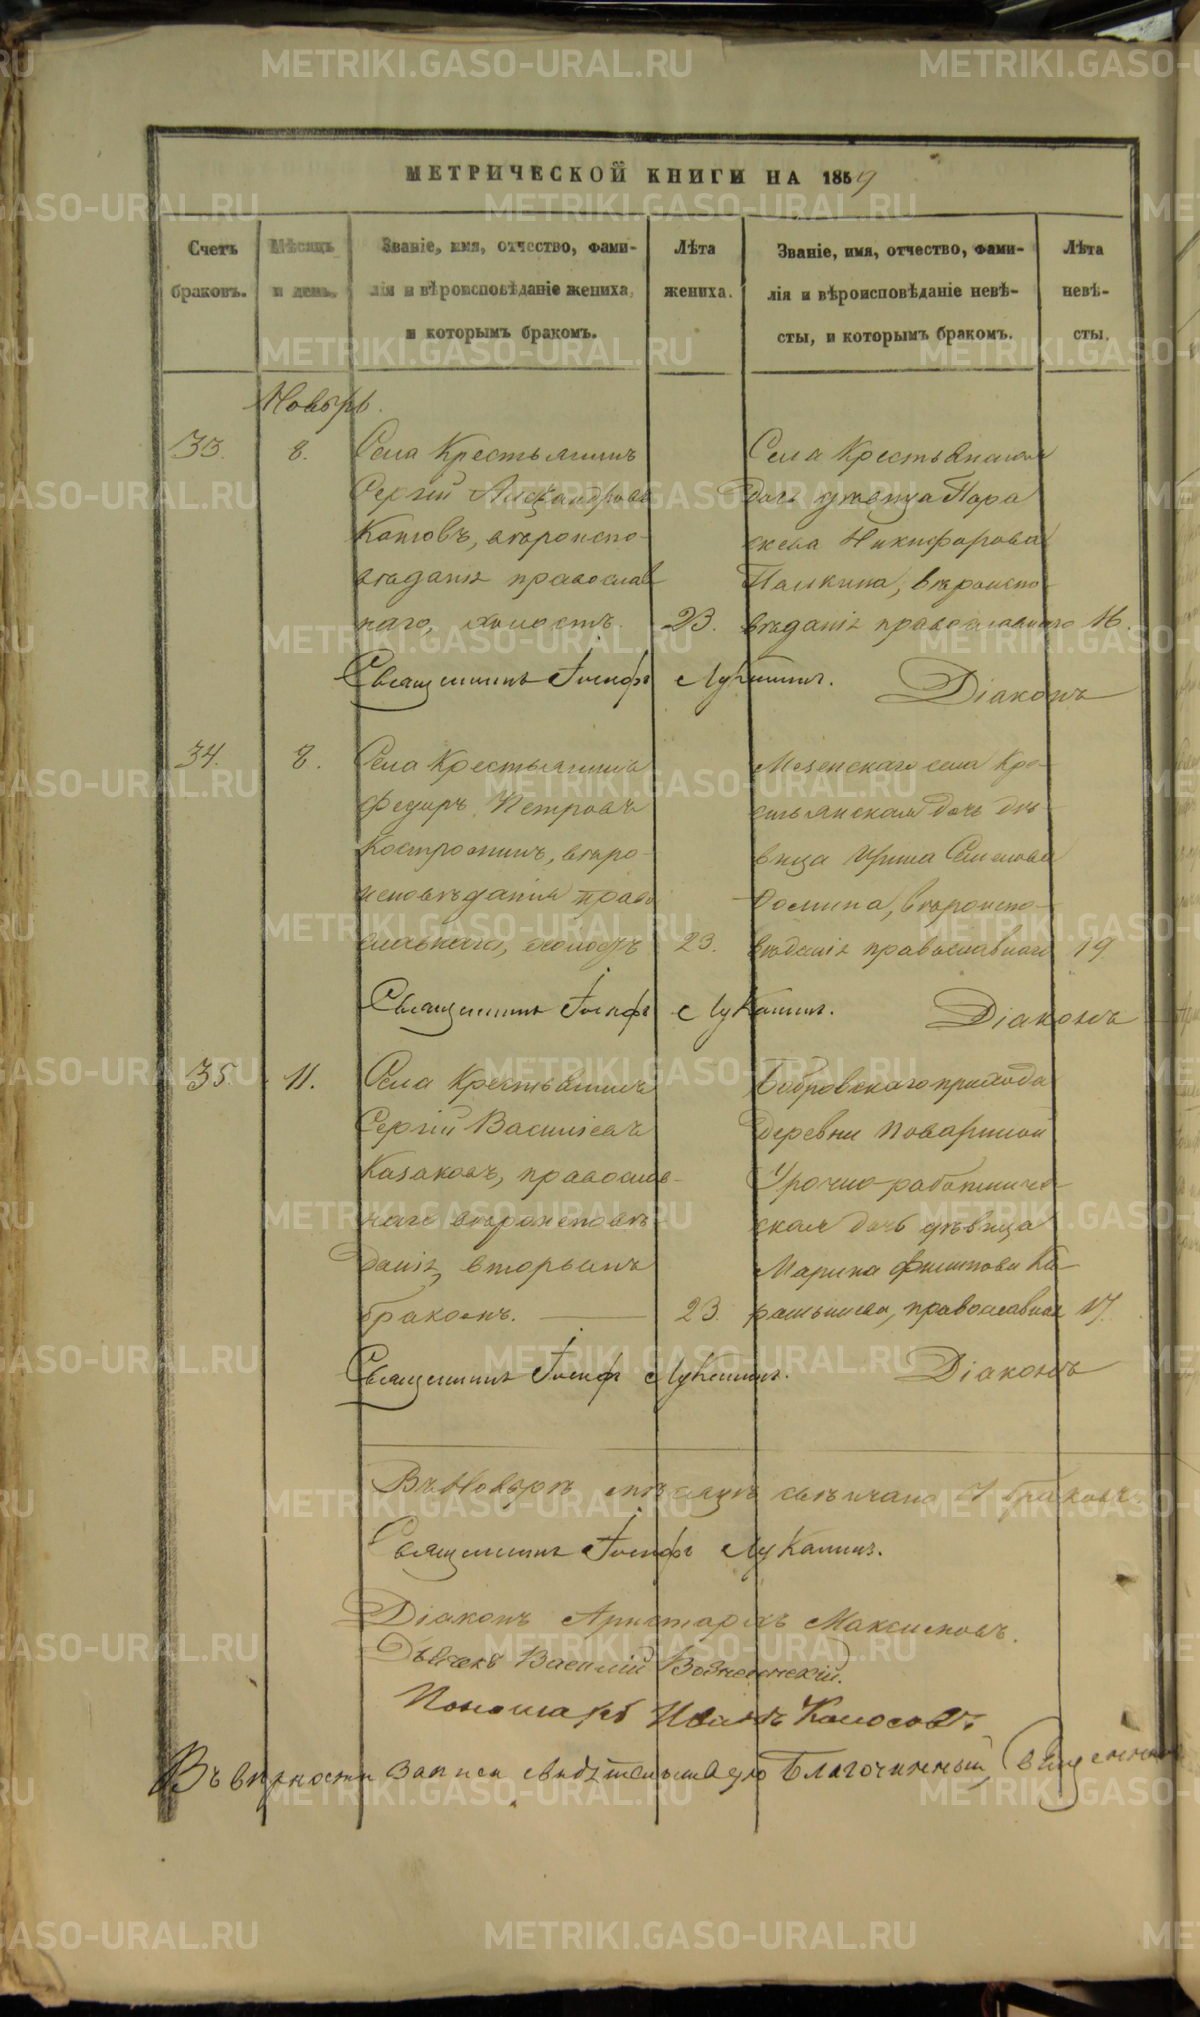 МЕТРИЧЕСКОЙ КНИГИ НА 1859
Счетъ браковъ.
Мѣсяцъ и день.
Званіе, имя, отчество, фами-
лія и вѣроисповѣданіе жениха,
и которымъ бракомъ.
Лѣта
жениха.
Званіе, имя, отчество, фами-
лія и вѣроисповѣданіе невѣ-
сты, и которымъ бракомъ.
Лѣта
невѣ-
сты.
Ноябрь.
33. 8.
Села Крестьянинъ
Сергій Александровъ
Котовъ, вѣроиспо-
вѣданія православ
наго, холостъ. 23.
Села Крестьянская
дочь дѣвица Пара
скева Никифорова
Палкина, вѣроиспо-
вѣданія православнаго 16.
Священникъ Іосифъ Луканинъ. Діаконъ
34. 8.
Села Крестьянинъ
Федоръ Петровъ
Костроминъ, вѣро-
исповѣданія право
славнаго, холостъ 23.
Мезенскаго села Кре-
стьянская дочь дѣ-
вица Ирина Семенова
вѣроиспо-
вѣданія православнаго 19
Священникъ Іосифъ Луканинъ. Діаконъ
35. 11.
Села Крестьянинъ
Сергій Васильевъ
Казаковъ, православ-
наго вѣроисповѣ-
данія, вторымъ
бракомъ. 23.
Бобровскаго прихода
деревни Поварнной
Урочно-работниче-
ская дочь дѣвица
Марина Филипова Ка-
православная 17.
Священникъ Іосифъ Луканинъ. Діаконъ
Въ Ноябрѣ мѣсяцѣ свѣнчано браковъ.
Священникъ Іосифъ Луканинъ.
Діаконъ Аристархъ Максимовъ.
Дьячекъ Василій Вознесенскій.
Пономарь Иванъ Колосовъ.
Въ вѣрности записи свидѣтельствую Благочинный, Священникъ